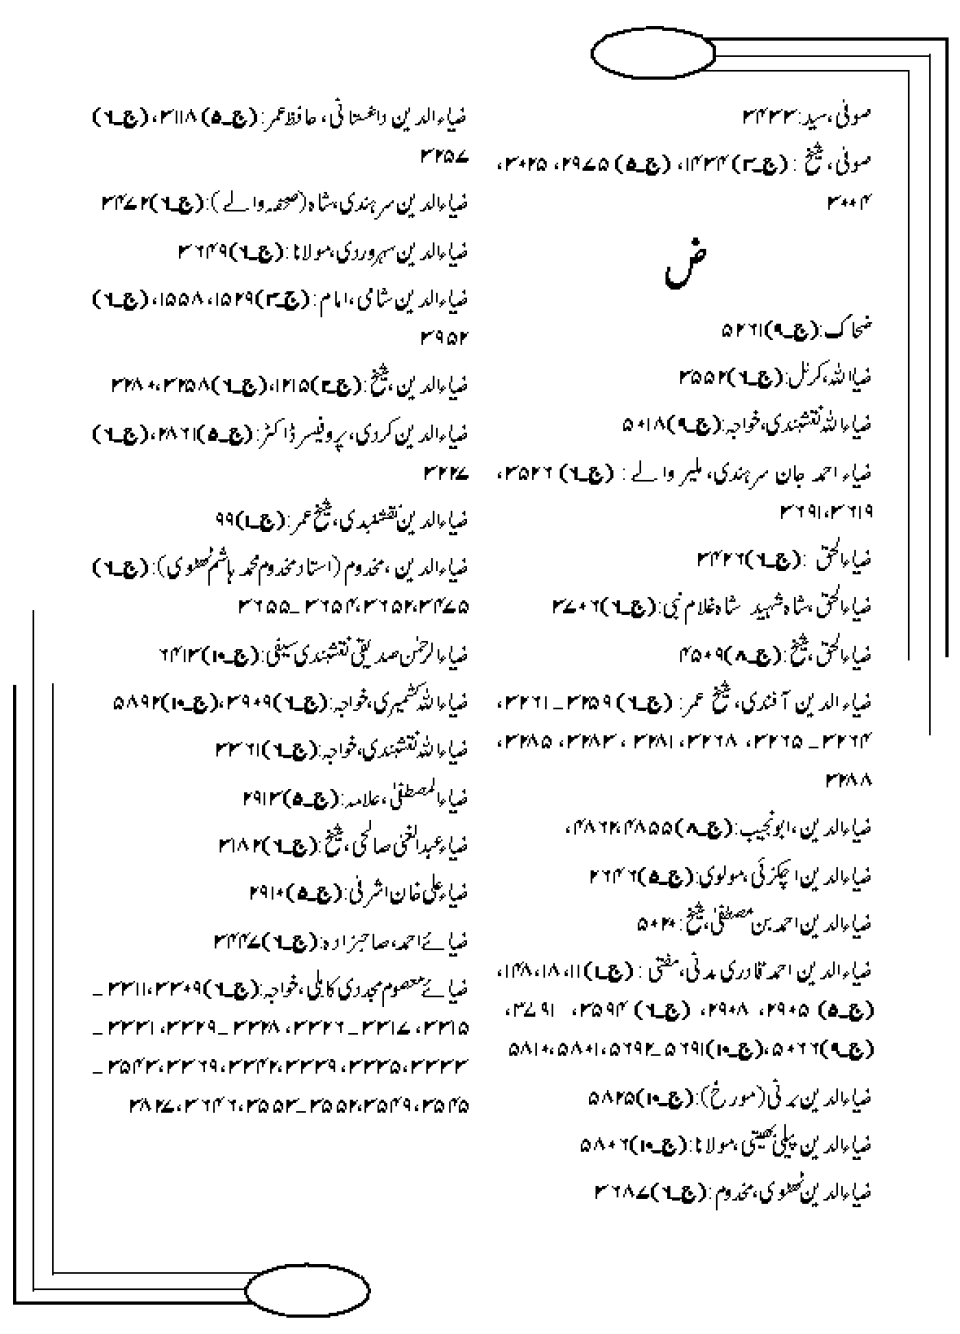 صوفی، سید: ۳۴۳۳
صوفی، شیخ : (ج۔۳) ۱۴۳۴، (ج۔۵) ۲۹۷۵، ۳۰۲۵،
۳۰۰۴
ض
ضحاک: (ج۔۹) ۵۲۶۱
ضیاء اللہ، کرنل: (ج۔٦) ۳۵۵۲
ضیاء اللہ نقشبندی، خواجہ: (ج۔۹) ۵۰۱۸
ضیاء احمد جان سرہندی، ملیر والے : (ج۔٦) ۳۵۲٦،
۳٦۹۱، ۳٦۱۹
ضیاءالحق : (ج۔٦) ۳۴۲٦
ضیاءالحق، شاہ شہید شاہ غلام نبی: (ج۔٦) ۳۷۰٦
ضیاءالحق، شیخ: (ج۔۸) ۴۵۰۹
ضیاء الدین آفندی، شیخ عمر: (ج۔٦) ۳۲۵۹ ۔ ۳۲٦۱،
۳۲٦۴ ۔ ۳۲٦۵، ۳۲٦۸، ۳۲۸۱، ۳۲۸۳، ۳۲۸۵،
۳۲۸۸
ضیاءالدین، ابونجیب: (ج۔۸) ۴۸۵۵، ۴۸٦۲،
ضیاءالدین اچکزئی، مولوی: (ج۔۵) ۲٦۴٦
ضیاءالدین احمد بن مصطفیٰ، شیخ: ۵۰۲۰
ضیاءالدین احمد قادری مدنی، مفتی : (ج۔۱) ۱۱، ۱۸، ۱۴۸،
(ج۔۵) ۲۹۰۵، ۲۹۰۸، (ج۔٦) ۳۵۹۴، ۳۷۹۱،
(ج۔۹) ۵۰٦٦، (ج۔۱۰) ۵٦۹۱ ۔ ۵٦۹۲، ۵۸۰۱، ۵۸۱۰
ضیاءالدین برنی (مورخ): (ج۔۱۰) ۵۸۲۵
ضیاءالدین پیلی بھیتی، مولانا: (ج۔۱۰) ۵۸۰٦
ضیاءالدین ٹھٹوی، مخدوم: (ج۔٦) ۳٦۸۷
ضیاءالدین داغستانی، حافظ عمر: (ج۔۵) ۳۱۱۸، (ج۔٦)
۳۲۵۷
ضیاءالدین سرہندی، شاہ ( والے): (ج۔٦) ۳۴۷۲
ضیاءالدین سہروردی، مولانا: (ج۔٦) ۳٦۴۹
ضیاءالدین شامی، امام: (ج۔۳) ۱۵۲۹، ۱۵۵۸، (ج۔٦)
۳۹۵۲
ضیاءالدین، شیخ: (ج۔۲) ۱۲۱۵، (ج۔٦) ۳۲۵۸، ۳۲۸۰
ضیاءالدین کردی، پروفیسر ڈاکٹر: (ج۔۵) ۲۸٦۱، (ج۔٦)
۳۲۲۷
ضیاءالدین نقشبندی، شیخ عمر: (ج۔۱) ۹۹
ضیاءالدین، مخدوم (استاد مخدوم محمد ہاشم ٹھٹوی): (ج۔٦)
۳۴۷۵، ۳٦۵۲، ۳٦۵۴ ۔ ۳٦۵۵
ضیاءالرحمٰن صدیقی نقشبندی سیفی: (ج۔۱۰) ٦۴۱۳
ضیاءاللہ کشمیری، خواجہ: (ج۔٦) ۳۹۰۹، (ج۔۱۰) ۵۸۹۲
ضیاءاللہ نقشبندی، خواجہ: (ج۔٦) ۳۳٦۱
ضیاءالمصطفیٰ، علامہ: (ج۔۵) ۲۹۱۳
ضیاء عبدالغنی صالحی، شیخ: (ج۔٦) ۳۱۸۲
ضیاء علی خان اشرفی: (ج۔۵) ۲۹۱۰
ضیائے احمد، صاحبزادہ: (ج۔٦) ۳۴۴۷
ضیائے معصوم مجددی کابلی، خواجہ: (ج۔٦) ۳۳۰۹، ۳۳۱۱ ۔
۳۳۱۵، ۳۳۱۷ ۔ ۳۳۲٦، ۳۳۲۸ ۔ ۳۳۲۹، ۳۳۳۱ ۔
۳۳۳۳، ۳۳۳۵، ۳۳۳۹، ۳۳۴۲، ۳۳٦۹، ۳۵۴۳ ۔
۳۵۴۵، ۳۵۴۹، ۳۵۵۲ ۔ ۳۵۵۳، ۳٦۴٦، ۳۸۲۷